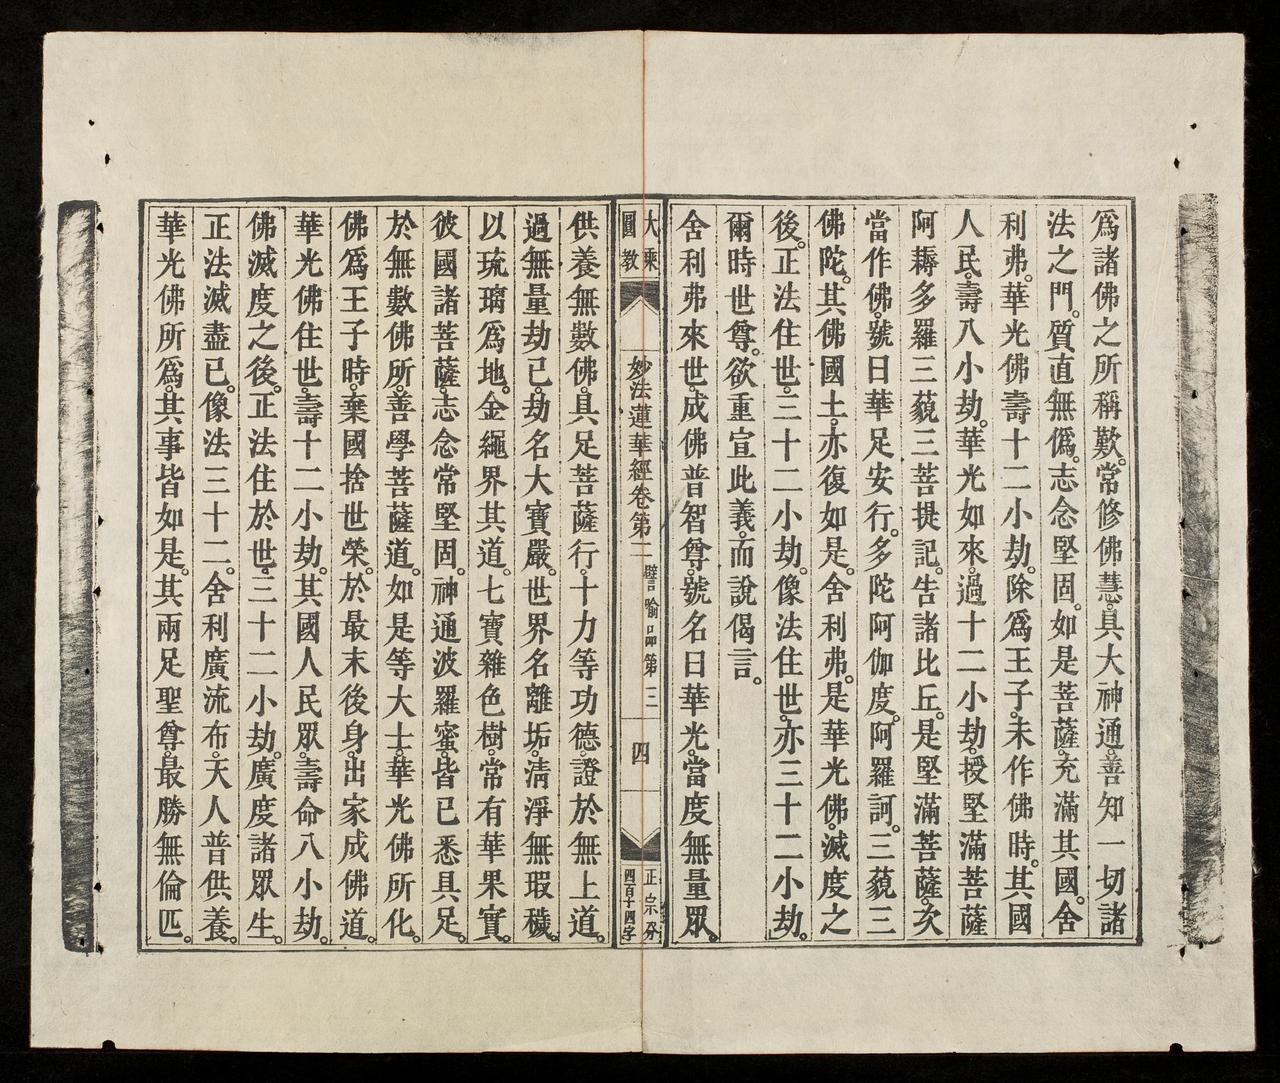 爲諸佛之所稱歎。常修佛慧。具大神通。善知一切諸
法之門。質直無僞。志念堅固。如是菩薩。充滿其國。舍
利弗。華光佛壽十二小劫。除爲王子。未作佛時。其國
人民。壽八小劫。華光如來。過十二小劫。授堅滿菩薩
阿耨多羅三藐三菩提記。告諸比丘。是堅滿菩薩。次
當作佛。號曰華足安行。多陀阿伽度。阿羅訶。三藐三
佛陀。其佛國土。亦復如是。舍利弗。是華光佛。滅度之
後。正法住世。三十二小劫。像法住世。亦三十二小劫。
爾時世尊。欲重宣此義。而說偈言。
舍利弗來世。成佛普智尊。號名曰華光。當度無量眾。
大乘
圓教
妙法蓮華經卷第二
譬喻品第三
四
正宗分
四百十四字
供養無數佛。具足菩薩行。十力等功德。證於無上道。
過無量劫已。劫名大寶嚴。世界名離垢。清淨無瑕穢。
以琉璃爲地。金繩界其道。七寶雜色樹。常有華果實。
彼國諸菩薩。志念常堅固。神通波羅蜜。皆已悉具足。
於無數佛所。善學菩薩道。如是等大士。華光佛所化。
佛爲王子時。棄國捨世榮。於最末後身。出家成佛道。
華光佛住世。壽十二小劫。其國人民眾。壽命八小劫。
佛滅度之後。正法住於世。三十二小劫。廣度諸眾生。
正法滅盡已。像法三十二。舍利廣流布。天人普供養。
華光佛所爲。其事皆如是。其兩足聖尊。最勝無倫匹。